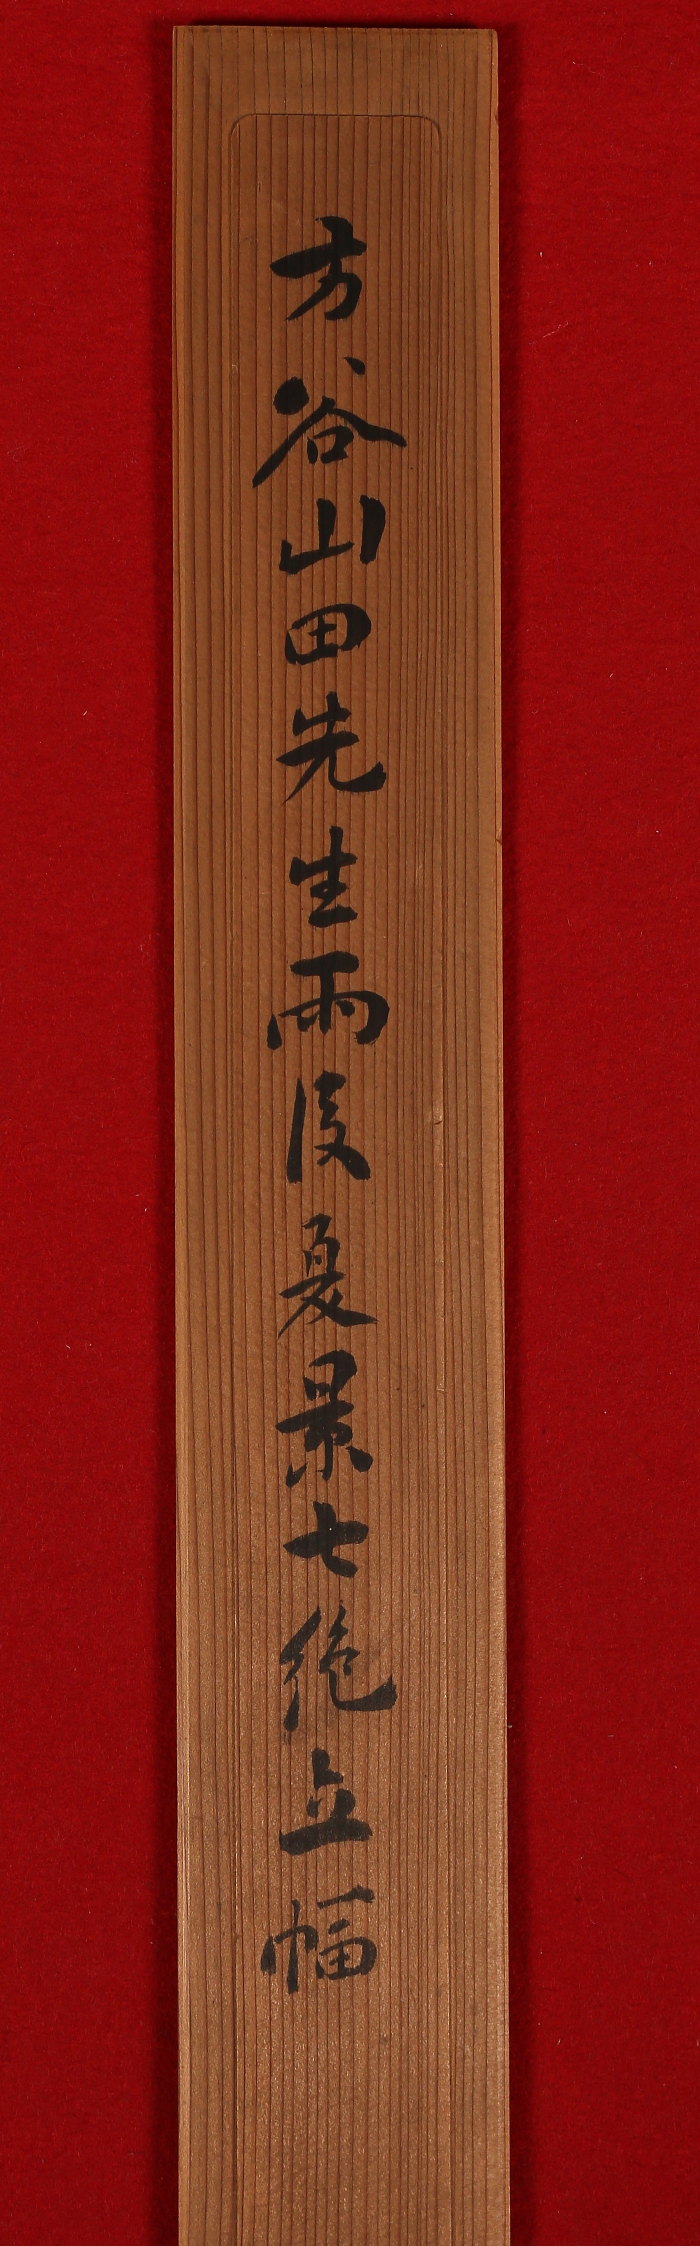 方谷山田先生雨後夏景七絶立幅